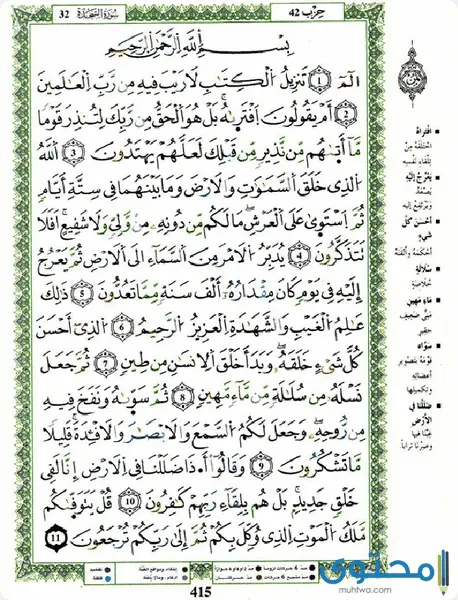 حزب 42
سورة السجدة
32
بسم الله الرحمن الرحيم
الم ① تنزيل الكتاب لا ريب فيه من رب العالمين
② أم يقولون افتريه بل هو الحق من ربك لتنذر قوما
ما أتيهم من نذير من قبلك لعلهم يهتدون ③ الله
الذي خلق السموات والارض وما بينهما في ستة أيام
ثم استوى على العرش ما لكم من دونه من ولي ولا شفيع أفلا
تتذكرون ④ يدبر الامر من السماء الى الارض ثم يعرج
إليه في يوم كان مقداره ألف سنة مما تعدون ⑤ ذلك
عالم الغيب والشهدة العزيز الرحيم ⑥ الذي أحسن
كل شيء خلقه وبدأ خلق الانسان من طين ⑦ ثم جعل
نسله من سللة من ماء مهين ⑧ ثم سويه ونفخ فيه
من روحه وجعل لكم السمع والابصر والافئدة قليلا
ما تشكرون ⑨ وقالوا أ.ذا ضللنا في الارض إنا لفي
خلق جديد بل هم بلقاء ربهم كفرون ⑩ قل يتوفكم
ملك الموت الذي وكل بكم ثم إلى ربكم ترجعون ⑪
افتراه
اختلقه من
تلقاء نفسه
يعرج إليه
يصعد
ويرتفع إليه
أحسن كل
شيء
أحكمه وأتقنه
سلالة
خلاصة
ماء مهين
مني ضعيف
حقير
سواه
قومه بتصوير
أعضائه
وتكميلها
ضللنا في
الأرض
غبنا فيها
وصرنا ترابا
415
محتوى
muhtwa.com